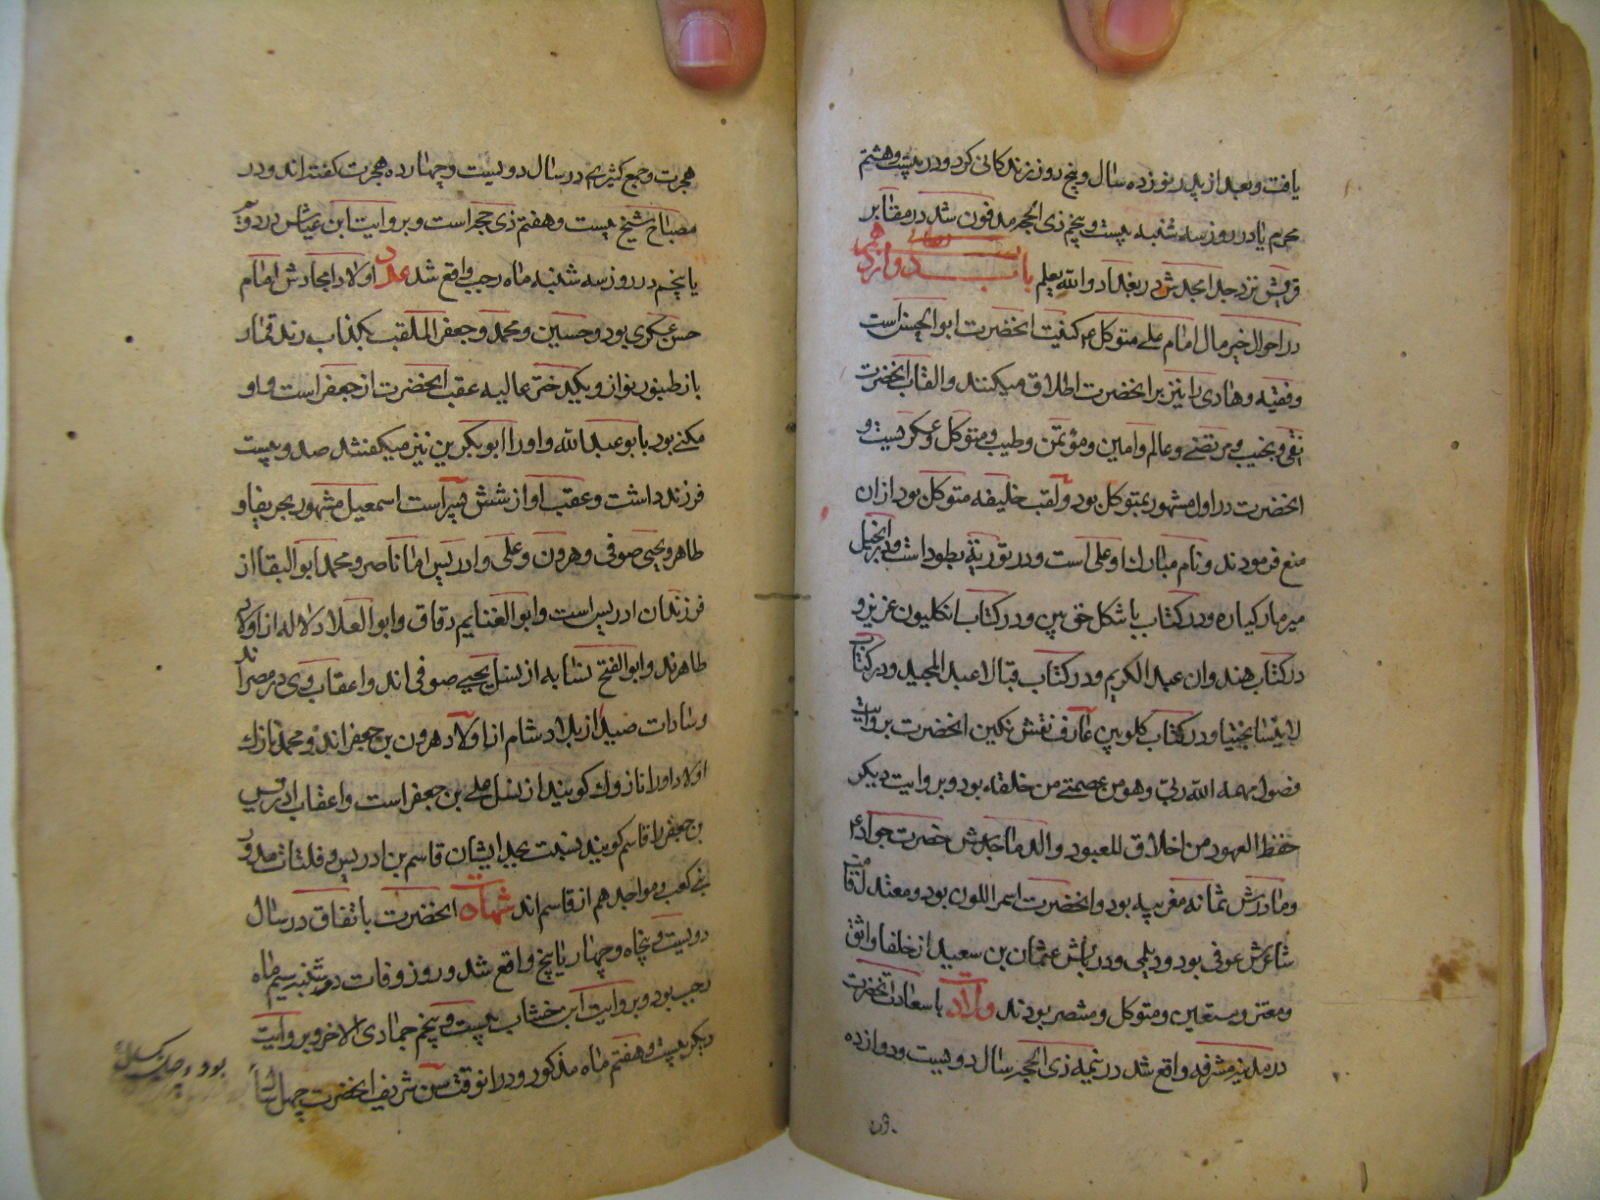 یافت و بعد از پدر نوزده سال و پنج روز زندکانی کرد و در بیست و هشتم
محرم یا در روز سه شنبه بیست و پنجم ذی الحجه مدفون شد در مقابر
قریش نزد جد امجدش در بغداد والله یعلم باب دوازدهم
در احوال خیر مال امام علی متوکل ع کنیت انحضرت ابو الحسن است
و فقیه و هادی را نیز بر انحضرت اطلاق میکنند و القاب انحضرت
نقی و نجیب و مرتضی و عالم و امین و مؤتمن و طیب و متوکل و عسکریست و
انحضرت در اول مشهور بمتوکل بود و لقب خلیفه متوکل بود ازان
منع فرمودند و نام مبارک او علی است و در توریة بطور داشت و در انجیل
میرمهار کیاره و در کتاب باشکل حق بین و در کتاب انکلیون عزیز و
در کتاب هندوان عبد الکریم و در کتاب قبالا عبد المجید و در کتاب
و در کتاب کلوبین عارف نقش نکین انحضرت بروایت
فصول مهمه الله ربی وهو من عصمتی من خلقه بود و بروایت دیکر
حفظ العهود من اخلاق للعبود والد ماجدش حضرت جواد ع
و مادرش ثمانه مغربیه بود و انحضرت اسمر اللون بود و معتدل قامت
شاعرش عوفی بود و دیلمی و دربانش عثمان بن سعید از خلفا واثق
و معتز و مستعین و متوکل و منتصر بودند ولادت با سعادت انحضرت
در مدینه مشرفه واقع شد در نیمه ذی الحجه سال دویست و دوازده
هجرت و جمع کثیری در سال دویست و چهارده هجرت کفته اند و در
مصباح شیخ بیست و هفتم ذی حجه است و بروایت ابن عیاش در دوم
یا پنجم در روز سه شنبه ماه رجب واقع شد عدد اولاد امجادش امام
حسن عسکری بود و حسین و محمد و جعفر الملقب بکذاب رند قمار
باز طنبور نواز و یکدختر عالیه عقب انحضرت از جعفر است و او
مکنی بود بابو عبد الله و او را ابو بکرین نیز میکفتند صد و بیست
فرزند داشت و عقب او از شش پسر است اسمعیل مشهور بحریفا و
طاهر و یحیی صوفی و هرون و علی و ادریس اما ناصر و محمد ابو البقا از
فرزندان ادریس است و ابو الغنایم دقاق و ابو العلا دلاله از اولاد
طاهرند و ابو الفتح نسابه از نسل یحیی صوفی اند و اعقاب وی در مصراند
و سادات صیدا از بلاد شام از اولاد هرون بن جعفراند و محمد نازک
اولاد او را نازوک کویند از نسل علی بن جعفر است و اعقاب ادریس
بن جعفر را قاسم کویند نسبت بجد ایشان قاسم بن ادریس و فلتات و بدور
بنی کعب و مواجد هم از قاسم اند شهادت انحضرت باتفاق در سال
دویست و پنجاه و چهار یا پنج واقع شد و روز وفات دوشنبه سیم ماه
رجب بود و بروایت ابن خشاب بیست و پنجم جمادی الاخر و بروایت
دیکر بیست و هفتم ماه مذکور و در انوقت سن شریف انحضرت چهل سال